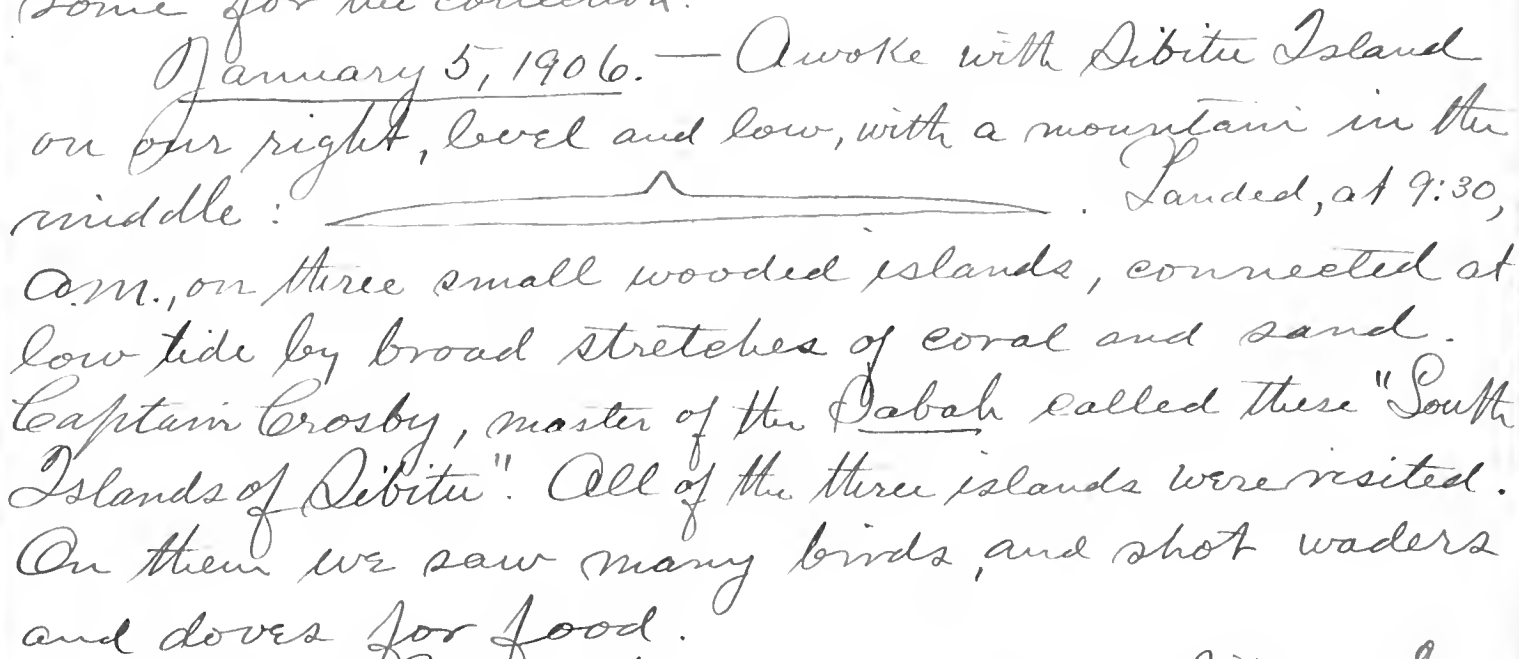 some for the collection.
January 5, 1906. — Awoke with Sibitu Island
on our right, level and low, with a mountain in the
middle : . Landed, at 9:30,
a.m., on three small wooded islands, connected at
low tide by broad stretches of coral and sand.
Captain Crosby, master of the Sabah called these "South
Islands of Sibitu". All of the three islands were visited.
On them we saw many birds, and shot waders
and doves for food.